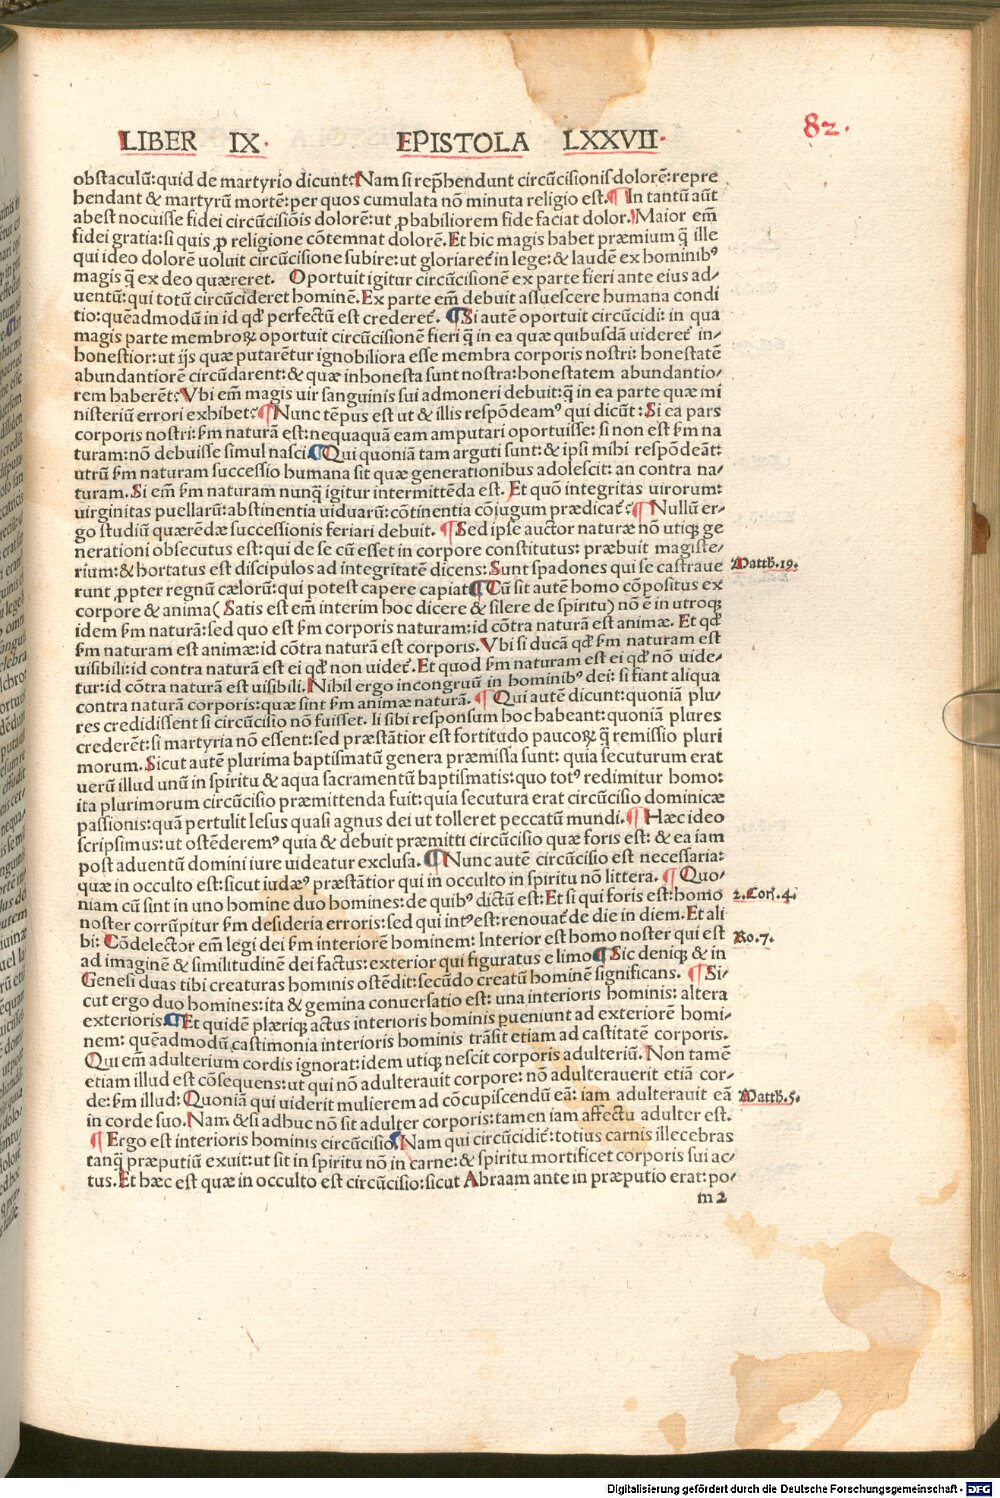 LIBER IX. EPISTOLA LXXVII. 82.
obstaculū: quid de martyrio dicunt? Nam si rep̄hendunt circūcisionis dolorē: repre
hendant & martyrū mortē: per quos cumulata nō minuta religio est. ¶ In tantū aūt
abest nocuisse fidei circūcisiōis dolorē: ut ꝓbabiliorem fidē faciat dolor. Maior em̄
fidei gratia: si quis ꝓ religione cōtemnat dolorē. Et hic magis habet præmium q̄ ille
qui ideo dolorē uoluit circūcisione subire: ut gloriareť in lege: & laudē ex hominibꝰ
magis q̄ ex deo quæreret. Oportuit igitur circūcisionē ex parte fieri ante eius ad⸗
uentū: qui totū circūcideret hominē. Ex parte em̄ debuit assuescere humana condi
tio: quēadmodū in id qđ perfectū est credereť. ¶ Si autē oportuit circūcidi: in qua
magis parte membroꝝ oportuit circūcisionē fieri q̄ in ea quæ quibusdā uidereť in⸗
honestior: ut ijs quæ putarētur ignobiliora esse membra corporis nostri: honestatē
abundantiorē circūdarent: & quæ inhonesta sunt nostra: honestatem abundantio⸗
rem haberēt? Vbi em̄ magis uir sanguinis sui admoneri debuit: q̄ in ea parte quæ mi
nisteriū errori exhibet? ¶ Nunc tēpus est ut & illis respōdeamꝰ qui dicūt: Si ea pars
corporis nostri: ẜm naturā est: nequaquā eam amputari oportuisse: si non est ẜm na
turam: nō debuisse simul nasci. ¶ Qui quoniā tam arguti sunt: & ipsi mihi respōdeāt:
utrū ẜm naturam successio humana sit quæ generationibus adolescit: an contra na⸗
turam. Si em̄ ẜm naturam nunq̄ igitur intermittēda est. Et quō integritas uirorum:
uirginitas puellarū: abstinentia uiduarū: cōtinentia cōjugum prædicať? ¶ Nullū er⸗
go studiū quærēdæ successionis feriari debuit. ¶ Sed ipse auctor naturæ nō utiqꝫ ge
nerationi obsecutus est: qui de se cū esset in corpore constitutus: præbuit magiste⸗
rium: & hortatus est discipulos ad integritatē dicens: Sunt spadones qui se castraue Matth. 19.
runt ꝓpter regnū cælorū: qui potest capere capiat. ¶ Cū sit autē homo cōpositus ex
corpore & anima (Satis est em̄ interim hoc dicere & silere de spiritu) nō ē in utroqꝫ
idem ẜm naturā: sed quo est ẜm corporis naturam: id cōtra naturā est animæ. Et qđ
ẜm naturam est animæ: id cōtra naturā est corporis. Vbi si ducā qđ ẜm naturam est
uisibili: id contra naturā est ei qđ non uideť. Et quod ẜm naturam est ei qđ nō uide⸗
tur: id cōtra naturā est uisibili. Nihil ergo incongruū in hominibꝰ dei: si fiant aliqua
contra naturā corporis: quæ sint ẜm animæ naturā. ¶ Qui autē dicunt: quoniā plu⸗
res credidissent si circūcisio nō fuisset. Ii sibi responsum hoc habeant: quoniā plures
crederēt: si martyria nō essent: sed præstātior est fortitudo paucoꝝ q̄ remissio pluri
morum. Sicut autē plurima baptismatū genera præmissa sunt: quia secuturum erat
uerū illud unū in spiritu & aqua sacramentū baptismatis: quo totꝰ redimitur homo:
ita plurimorum circūcisio præmittenda fuit: quia secutura erat circūcisio dominicæ
passionis: quā pertulit Iesus quasi agnus dei ut tolleret peccatū mundi. ¶ Hæc ideo
scripsimus: ut ostēderemꝰ quia & debuit præmitti circūcisio quæ foris est: & ea iam
post aduentū domini iure uideatur exclusa. ¶ Nunc autē circūcisio est necessaria:
quæ in occulto est: sicut iudæꝰ præstātior qui in occulto in spiritu nō littera. ¶ Quo⸗
niam cū sint in uno homine duo homines: de quibꝰ dictū est: Et si qui foris est: homo 2. Corī. 4.
noster corrūpitur ẜm desideria erroris: sed qui intꝰ est: renouať de die in diem. Et ali
bi: Cōdelector em̄ legi dei ẜm interiorē hominem: Interior est homo noster qui est Ro. 7.
ad imaginē & similitudinē dei factus: exterior qui figuratus e limo. ¶ Sic deniqꝫ & in
Genesi duas tibi creaturas hominis ostēdit: secūdo creatū hominē significans. ¶ Si⸗
cut ergo duo homines: ita & gemina conuersatio est: una interioris hominis: altera
exterioris. ¶ Et quidē plæriqꝫ actus interioris hominis ꝑueniunt ad exteriorē homi⸗
nem: quēadmodū castimonia interioris hominis trāsit etiam ad castitatē corporis.
Qui em̄ adulterium cordis ignorat: idem utiqꝫ nescit corporis adulteriū. Non tamē
etiam illud est cōsequens: ut qui nō adulterauit corpore: nō adulterauerit etiā cor⸗
de: ẜm illud: Quoniā qui uiderit mulierem ad cōcupiscendū eā: iam adulterauit eā Matth. 5.
in corde suo. Nam & si adhuc nō sit adulter corporis: tamen iam affectu adulter est.
¶ Ergo est interioris hominis circūcisio. Nam qui circūcidiť: totius carnis illecebras
tanq̄ præputiū exuit: ut sit in spiritu nō in carne: & spiritu mortificet corporis sui ac⸗
tus. Et hæc est quæ in occulto est circūcisio: sicut Abraam ante in præputio erat: po⸗
m 2
Digitalisierung gefördert durch die Deutsche Forschungsgemeinschaft - DFG